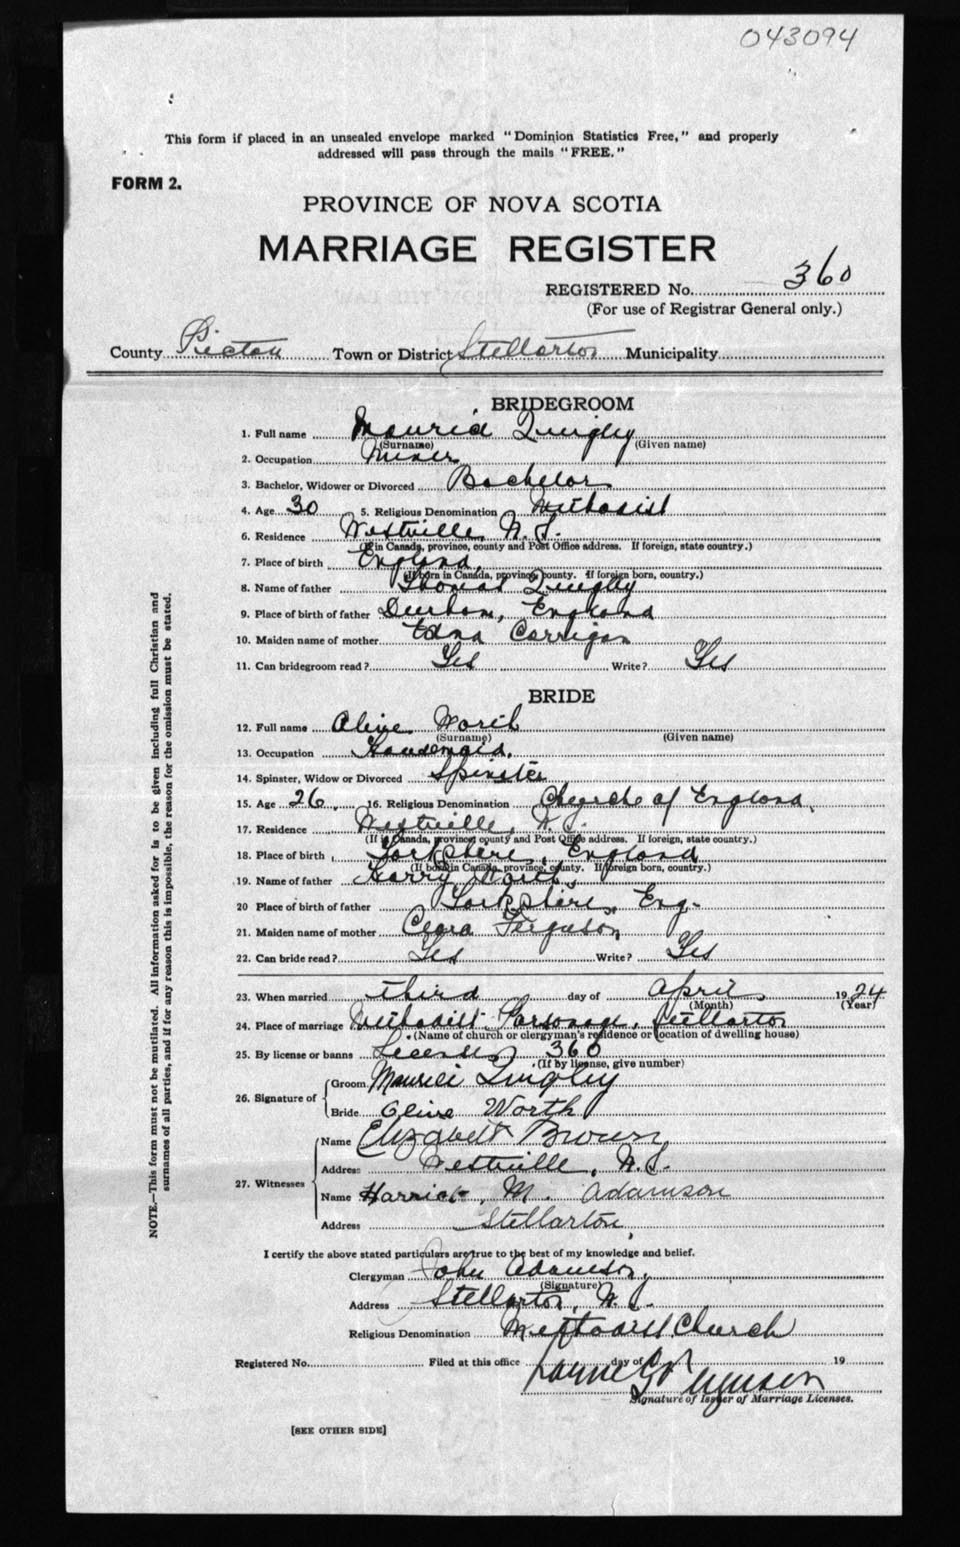 043094
This form if placed in an unsealed envelope marked "Dominion Statistics Free," and properly
addressed will pass through the mails "FREE."
FORM 2.
PROVINCE OF NOVA SCOTIA
MARRIAGE REGISTER
REGISTERED No. 360
(For use of Registrar General only.)
County Pictou Town or District Stellarton Municipality
BRIDEGROOM
1. Full name Quigley
(Surname) (Given name)
2. Occupation Miner
3. Bachelor, Widower or Divorced Bachelor
4. Age 30 5. Religious Denomination Methodist
6. Residence Westville, N.S.
(If in Canada, province, county and Post Office address. If foreign, state country.)
7. Place of birth England
(If born in Canada, province, county. If foreign born, country.)
8. Name of father Thomas Quigley
9. Place of birth of father Durham, England
10. Maiden name of mother Edna Corrigan
11. Can bridegroom read? Yes Write? Yes
BRIDE
12. Full name Olive Worth
(Surname) (Given name)
13. Occupation Housemaid.
14. Spinster, Widow or Divorced Spinster
15. Age 26 16. Religious Denomination Church of England
17. Residence Westville, N.S.
(If in Canada, province, county and Post Office address. If foreign, state country.)
18. Place of birth Yorkshire, England
(If born in Canada, province, county. If foreign born, country.)
19. Name of father Harry Worth
20 Place of birth of father Yorkshire, Eng.
21. Maiden name of mother Clara Ferguson
22. Can bride read? Yes Write? Yes
23. When married third day of April 1924
(Month) (Year)
24. Place of marriage Methodist Parsonage, Stellarton
(Name of church or clergyman's residence or location of dwelling house)
25. By license or banns License 360
(If by license, give number)
26. Signature of
Groom Quigley
Bride Olive Worth
27. Witnesses
Name Elizabeth Brown
Address Westville, N.S.
Name Harriet M. Adamson
Address Stellarton
I certify the above stated particulars are true to the best of my knowledge and belief.
Clergyman John Adamson
(Signature)
Address Stellarton, N.S.
Religious Denomination Methodist Church
Registered No. Filed at this office day of 19
Signature of Issuer of Marriage Licenses.
[SEE OTHER SIDE]
NOTE.—This form must not be mutilated. All information asked for is to be given including full Christian and
surnames of all parties, and if for any reason this is impossible, the reason for the omission must be stated.